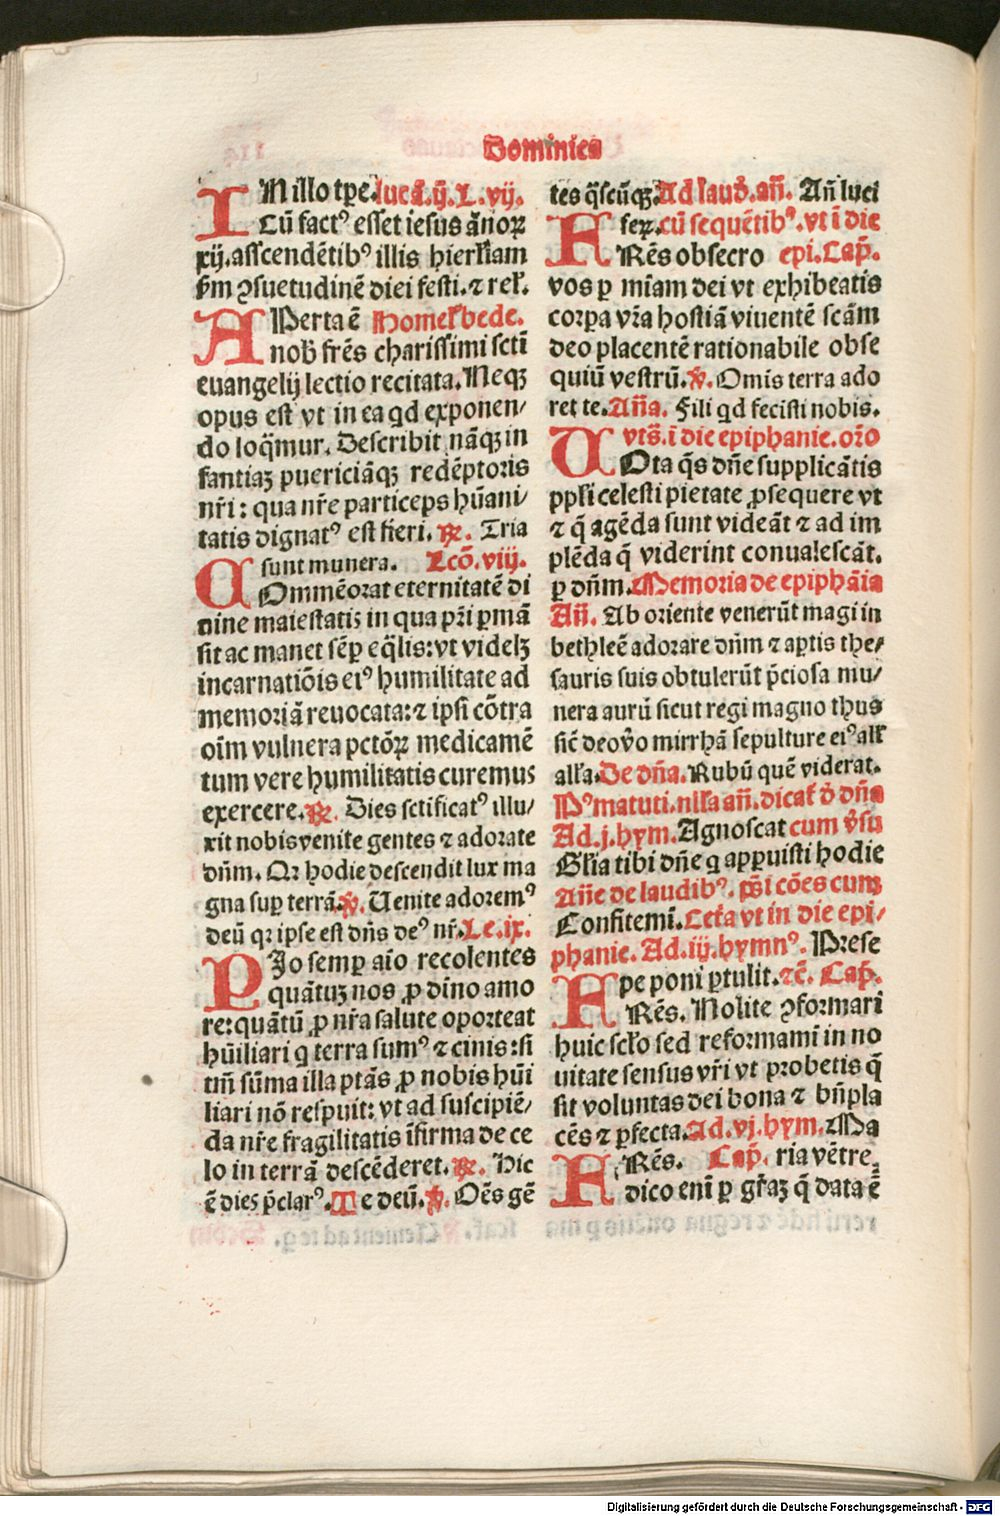 Dominica
IN illo tp̄e. lucā.ij. L. vij.
Cū factꝰ esset iesus ānoꝝ
xij. ascendētibꝰ illis hierłiam
ẜm ꝯsuetudinē diei festi. ⁊ reł.
APerta ē Homeł bede.
nob̄ fr̄es charissimi sctī
euangelij lectio recitata. Neqꝫ
opus est vt in ea qd exponen/
do loq̄mur. Describit nāqꝫ in
fantiaꝫ puericiāqꝫ redēptoris
nr̄i: qua nr̄e particeps hūani/
tatis dignatꝰ est fieri. ℟. Tria
sunt munera. Lcō. viij.
COmmēorat eternitatē di
uine maiestatis in qua pr̄i ꝑmā
sit ac manet sēꝑ eq̄lis: vt videlꝫ
incarnatiōis eiꝰ humilitate ad
memoriā reuocata: ⁊ ipsi cōtra
oīm vulnera pctōꝝ medicamē
tum vere humilitatis curemus
exercere. ℟. Dies sctificatꝰ illu/
xit nobis venite gentes ⁊ adorate
dn̄m. Qꝛ hodie descendit lux ma
gna suꝑ terrā. ℣. Uenite adoremꝰ
deū qꝛ ipse est dn̄s deꝰ nr̄. Le. ix.
PJo semꝑ aīo recolentes
quātuꝫ nos ꝓ dīno amo
re: quātū ꝓ nr̄a salute oporteat
hūiliari q terra sumꝰ ⁊ cinis: si
tm̄ sūma illa ptās ꝓ nobis hūi
liari nō respuit: vt ad suscipiē/
da nr̄e fragilitatis īfirma de ce
lo in terrā descēderet. ℟. Hic
ē dies p̄clarꝰ. Te deū. ℣. Oēs gē
tes q̄scūqꝫ. Ad laud̄. an̄. An̄ luci
feꝝ. cū sequētibꝰ. vt ī die
FRēs obsecro epi. Cap̄.
vos ꝑ miam dei vt exhibeatis
corpa vr̄a hostiā viuentē scām
deo placentē rationabile obse
quiū vestrū. ℣. Omis terra ado
ret te. Añā. Fili qd fecisti nobis.
vts̄. ī die epiphanie. orō
UOta q̄s dn̄e supplicātis
ppłi celesti pietate ꝓsequere vt
⁊ q̄ agēda sunt videāt ⁊ ad im
plēda q̄ viderint conualescāt.
ꝑ dn̄m. Memoria de epiphāia
An̄. Ab oriente venerūt magi in
bethleē adorare dn̄m ⁊ aꝑtis the/
sauris suis obtulerūt p̄ciosa mu/
nera aurū sicut regi magno thus
sic̄ deo v̄o mirrhā sepulture eiꝰ ałł
ałła. De dn̄a. Rubū quē viderat.
Pꝰ matuti. nłła an̄. dicat̄ d̄ dn̄a
Ad. j. hym. Agnoscat cum v̄su
Glīa tibi dn̄e q apꝑuisti hodie
An̄e de laudibꝰ. ps̄i cōes cum
Confitemī. Ceťa vt in die epi/
phanie. Ad. iij. hymnꝰ. Prese
pe poni ꝑtulit. ⁊c̄. Cap̄.
FRēs. Nolite ꝯformari
huic scło sed reformamī in no
uitate sensus vr̄i vt probetis q̄
sit voluntas dei bona ⁊ bn̄pla
cēs ⁊ ꝑfecta. Ad. vj. hym. Ma
FRēs. Cap̄. ria vētre.
dico enī ꝑ gr̄aꝫ q̄ data ē
Digitalisierung gefördert durch die Deutsche Forschungsgemeinschaft - DFG